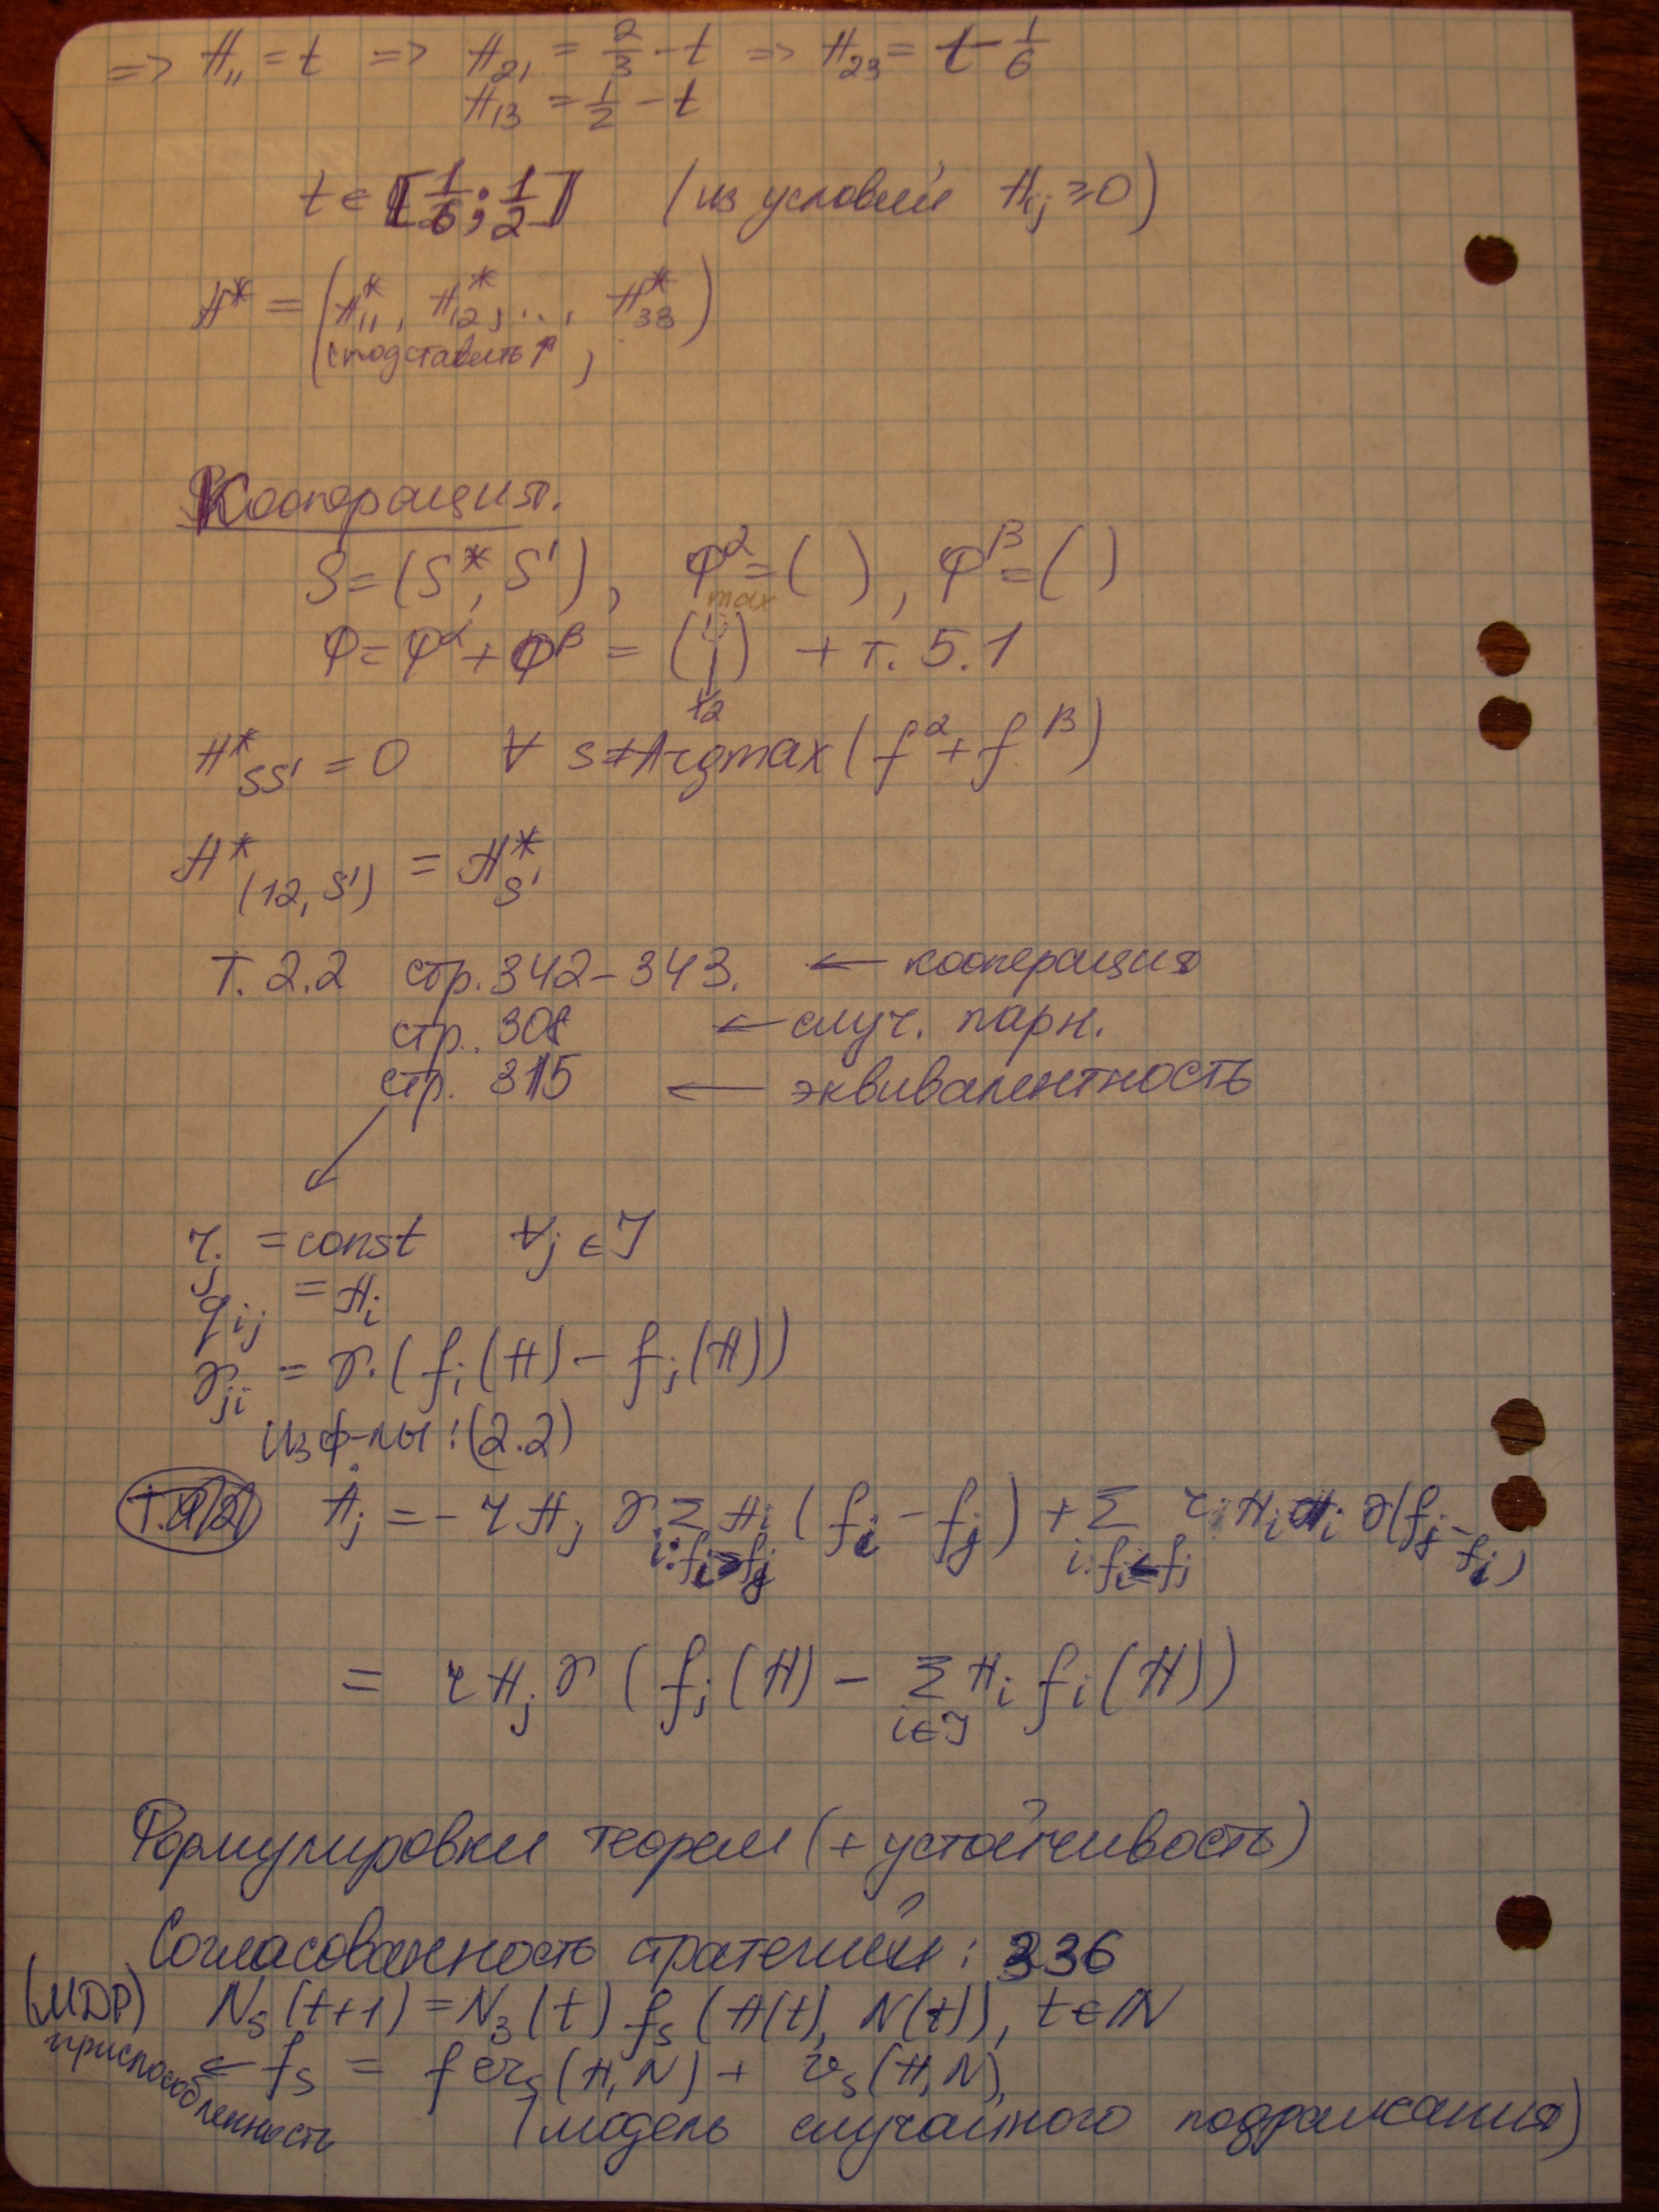 => π₁₁ = t => π₂₁ = 2/3 - t => π₂₃ = t - 1/6
π₁₃ = 1/2 - t
t ∈ [1/6; 1/2] (из условий π_ij ≥ 0)
π* = (π*₁₁, π*₁₂, ..., π*₃₃)
(подставить ↑)
Кооперация.
S = (S*, S'), φ^α = ( ), φ^β = ( )
max
φ = φ^α + φ^β = ( ) + т. 5.1
π*_SS' = 0 ∀ s ≠ Argmax (f^α + f^β)
π*_(12, S') = π*_S'
Т. 2.2 стр. 342-343. ← кооперация
стр. 308 ← случ. парн.
стр. 315 ← эквивалентность
r_j = const ∀j ∈ J
q_ij = π_i
γ_ji = γ·(f_i(π) - f_j(π))
из ф-лы: (2.2)
π̇_j = - r π_j γ Σ_{i: f_i > f_j} π_i (f_i - f_j) + Σ_{i: f_i < f_j} r_i π_i π_i γ(f_j - f_i)
= r π_j γ (f_j(π) - Σ_{i∈J} π_i f_i(π))
Формулировки теорем (+ устойчивость)
Согласованность стратегий: 336
(МДР) N_s(t+1) = N_s(t) f_s(π(t), N(t)), t ∈ N
приспособленность ← f_s = fer_s(π, N) + v_s(π, N),
(модель случайного подражания)